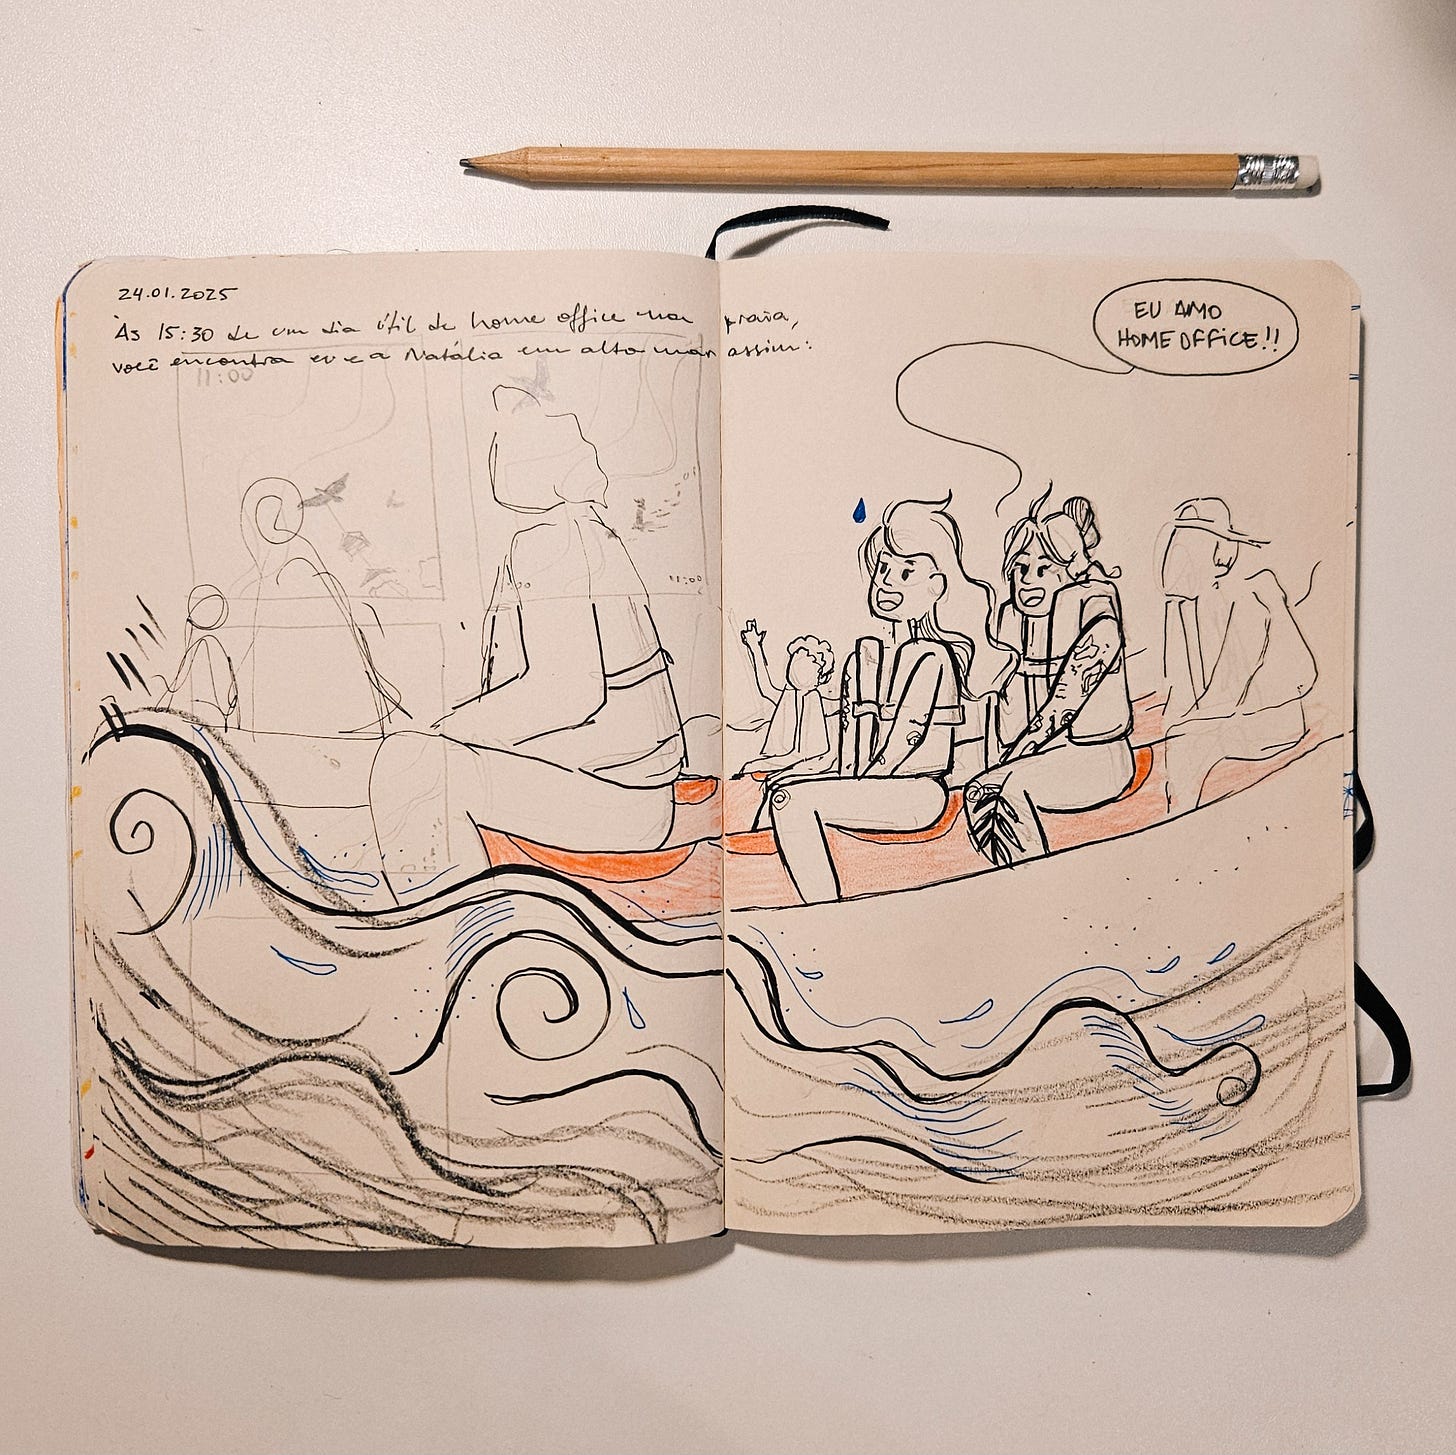 24.01.2025
Às 15:30 de um dia útil de home office na praia,
você encontra eu e a Natália em alto mar assim:
11:00
EU AMO
HOME OFFICE!!
11:00